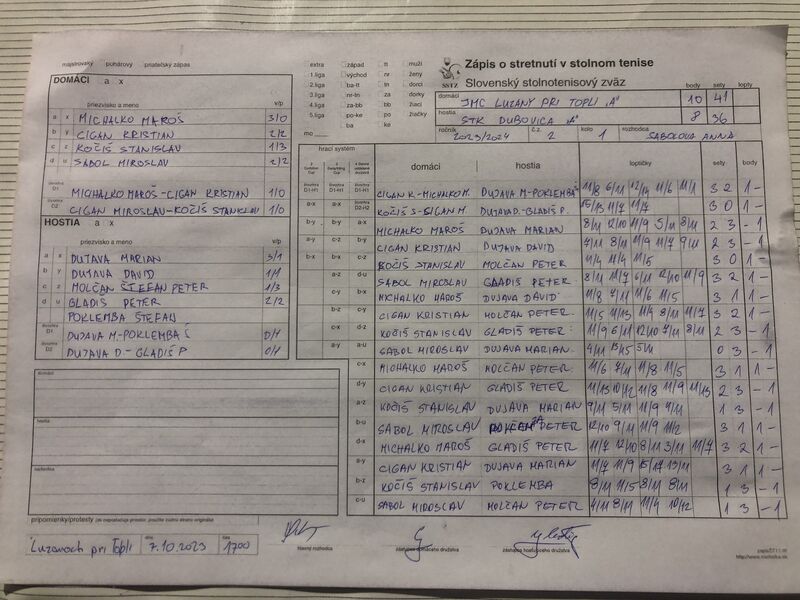 majstrovský pohárový priateľský zápas
DOMÁCI a x
priezvisko a meno v/p
a x MICHALKO MAROŠ 3/0
b y CIGAN KRISTIAN 2/2
c z KOČIŠ STANISLAV 1/3
d u SABOL MIROSLAV 2/2
štvorhra D1 MICHALKO MAROŠ-CIGAN KRISTIAN 1/0
štvorhra D2 CIGAN MIROSLAV-KOČIŠ STANISLAV 1/0
HOSTIA a x
priezvisko a meno v/p
a x DUJAVA MARIAN 3/1
b y DUJAVA DAVID 1/1
c z MOLČAN ŠTEFAN PETER 1/3
d u GLADIŠ PETER 2/2
POKLEMBA ŠTEFAN
štvorhra D1 DUJAVA M-POKLEMBA Š 0/1
štvorhra D2 DUJAVA D.-GLADIŠ P 0/1
domáci
hostia
rozhodca
pripomienky/protesty
Luzanoch pri Topli dňa 7.10.2023 čas 1700
hlavný rozhodca zástupca domáceho družstva zástupca hosťujúceho družstva
extra západ tt muži
1.liga východ nr ženy
2.liga ba-tt tn dorci
3.liga nr-tn za dorky
4.liga za-bb bb žiaci
5.liga po-ke po žiačky
ba ke
mo
SSTZ
Zápis o stretnutí v stolnom tenise
Slovenský stolnotenisový zväz
body sety lopty
domáci JMC LUZANY PRI TOPLI "A" 10 41
hostia STK DUBOVICA "A" 8 36
ročník 2023/2024 č.z. 2 kolo 1 rozhodca SABOLOVA ANNA
hrací systém
domáci hostia loptičky sety body
CIGAN K.-MICHALKO M. DUJAVA M-POKLEMBA 11/8 6/11 12/14 11/6 11/1 3 2 1 -
KOČIŠ S-CIGAN M. DUJAVA D.-GLADIŠ P. 15/13 11/7 11/7 3 0 1 -
b-y a-y MICHALKO MAROŠ DUJAVA MARIAN 8/11 12/10 11/9 5/11 8/11 2 3 - 1
a-y c-z b-y CIGAN KRISTIAN DUJAVA DAVID 7/11 8/11 11/9 11/7 9/11 2 3 - 1
b-x b-x c-z KOČIŠ STANISLAV MOLČAN PETER 11/4 11/4 11/5 3 0 1 -
a-z d-u SABOL MIROSLAV GLADIŠ PETER 8/11 11/7 6/11 12/10 11/9 3 2 1 -
c-y b-x MICHALKO MAROŠ DUJAVA DAVID 11/8 7/11 11/6 11/5 3 1 1 -
b-z c-y CIGAN KRISTIAN MOLČAN PETER. 11/5 11/13 11/9 8/11 11/7 3 2 1 -
c-x d-z KOČIŠ STANISLAV GLADIŠ PETER 11/9 6/11 12/10 7/11 8/11 2 3 - 1
a-y a-u SABOL MIROSLAV DUJAVA MARIAN. 4/11 13/15 5/11 0 3 - 1
c-x MICHALKO MAROŠ MOLČAN PETER. 11/6 7/11 11/8 11/5 3 1 1 -
d-y CIGAN KRISTIAN GLADIŠ PETER 11/13 10/12 11/8 11/9 11/13 2 3 - 1
a-z KOČIŠ STANISLAV DUJAVA MARIAN 9/11 5/11 11/9 4/11 1 3 - 1
b-u SABOL MIROSLAV PETER 12/10 9/11 11/9 11/2 3 1 1 -
d-x MICHALKO MAROŠ GLADIŠ PETER 11/7 12/10 8/11 3/11 11/7 3 2 1 -
a-y CIGAN KRISTIAN DUJAVA MARIAN 11/7 11/9 15/17 13/11 3 1 1 -
b-z KOČIŠ STANISLAV POKLEMBA 8/11 11/5 8/11 8/11 1 3 - 1
c-u SABOL MIROSLAV MOLČAN PETER 4/11 8/11 11/4 10/12 1 3 - 1